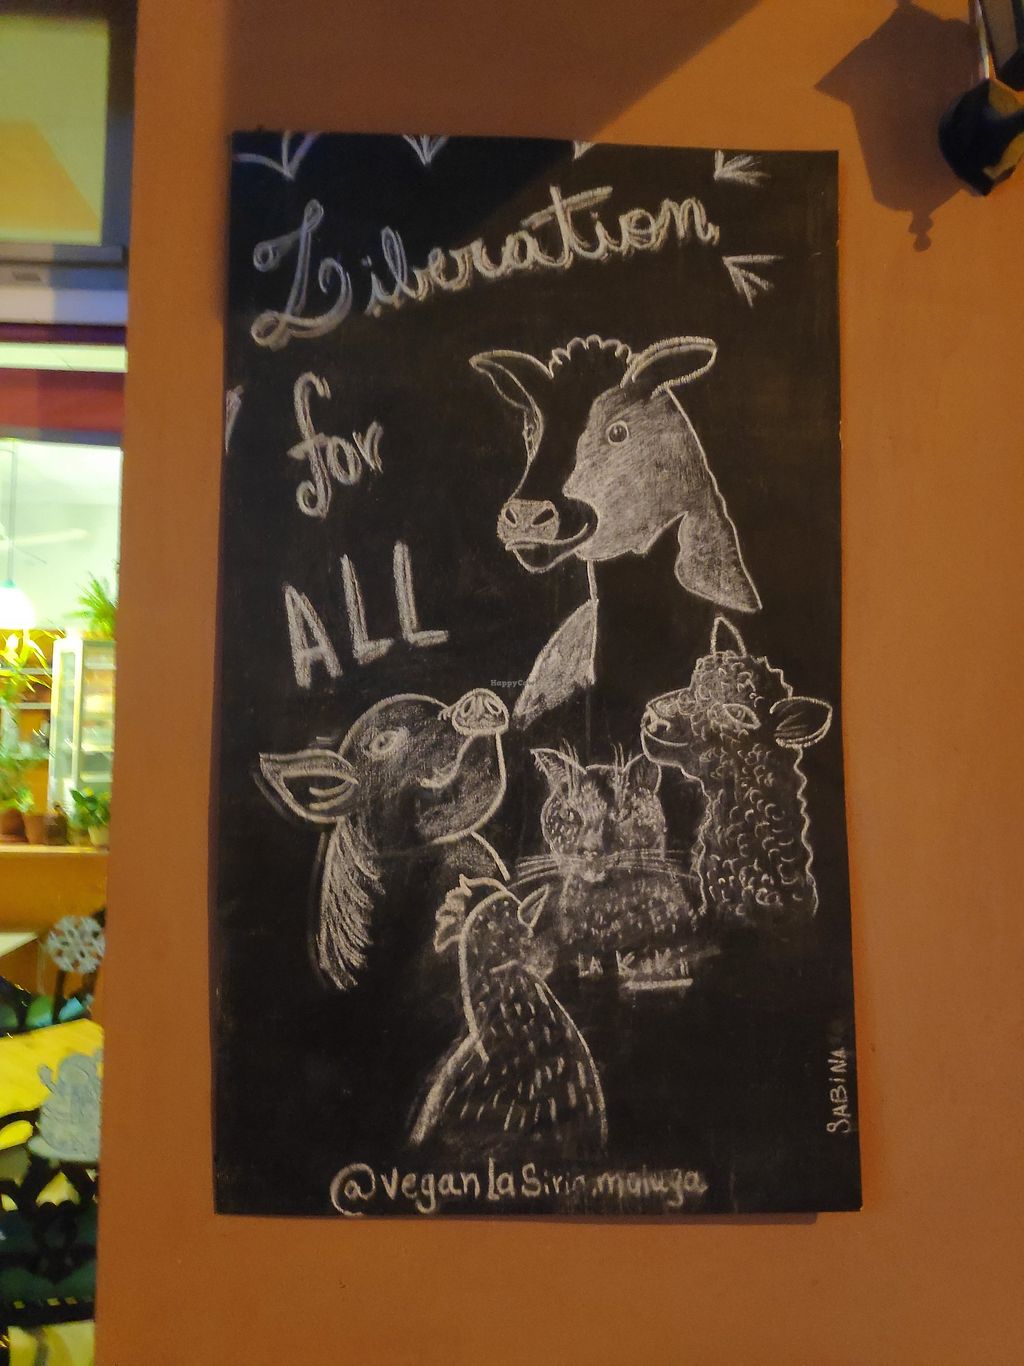 Liberation
for
ALL
HappyCow
LA KiKii
SABiNA
@veganLaSirin.maluga